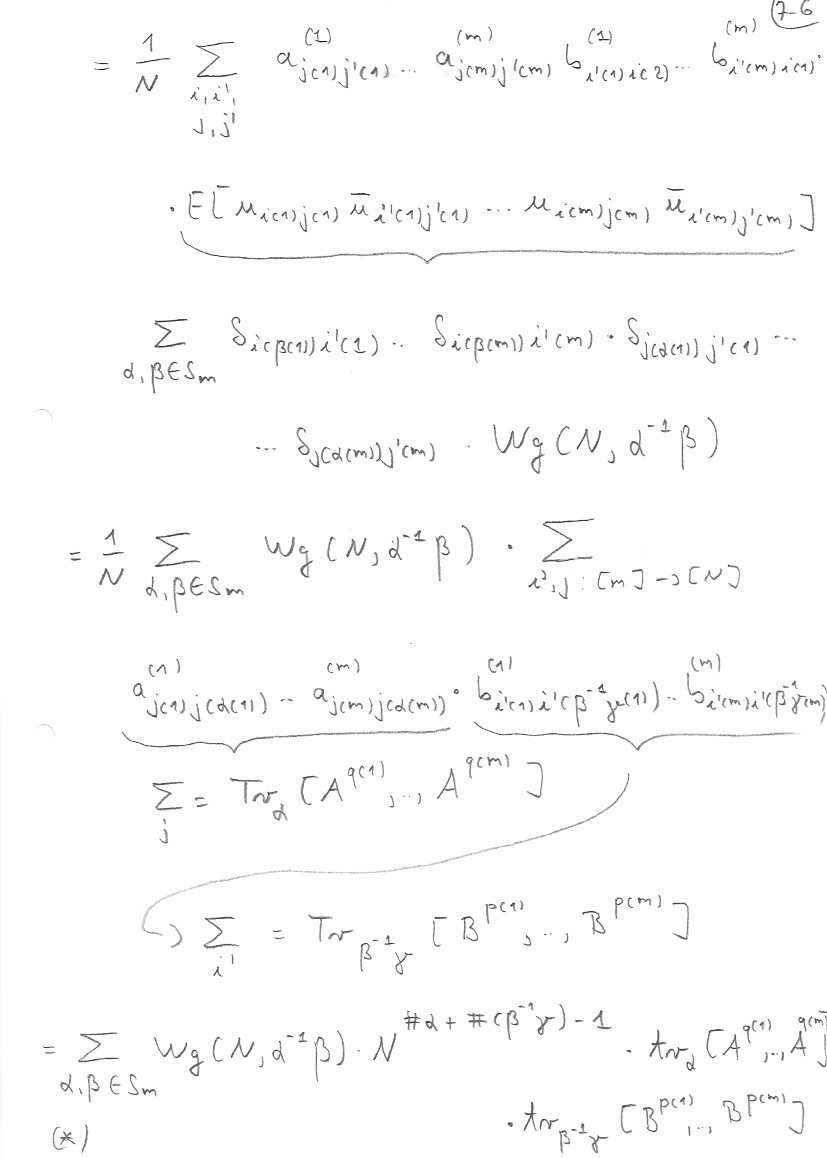 7-6
= 1/N Σ_{i,i',j,j'} a^{(1)}_{j(1)j'(1)} ... a^{(m)}_{j(m)j'(m)} b^{(1)}_{i'(1)i(2)} ... b^{(m)}_{i'(m)i(1)} ·
· E[u_{i(1)j(1)} ū_{i'(1)j'(1)} ... u_{i(m)j(m)} ū_{i'(m)j'(m)}]
Σ_{α,β∈S_m} δ_{i(β(1))i'(1)} .. δ_{i(β(m))i'(m)} · δ_{j(α(1))j'(1)} ...
... δ_{j(α(m))j'(m)} · Wg(N, α^{-1}β)
= 1/N Σ_{α,β∈S_m} Wg(N, α^{-1}β) · Σ_{i',j:[m]→[N]}
a^{(1)}_{j(1)j(α(1))} .. a^{(m)}_{j(m)j(α(m))} · b^{(1)}_{i'(1)i'(β^{-1}γ(1))} .. b^{(m)}_{i'(m)i'(β^{-1}γ(m))}
Σ_j = Tr_α [A^{q(1)}, .., A^{q(m)}]
→ Σ_{i'} = Tr_{β^{-1}γ} [B^{p(1)}, .., B^{p(m)}]
= Σ_{α,β∈S_m} Wg(N, α^{-1}β) · N^{#α + #(β^{-1}γ) - 1} · tr_α [A^{q(1)}, .., A^{q(m)}]
(*) · tr_{β^{-1}γ} [B^{p(1)}, .., B^{p(m)}]